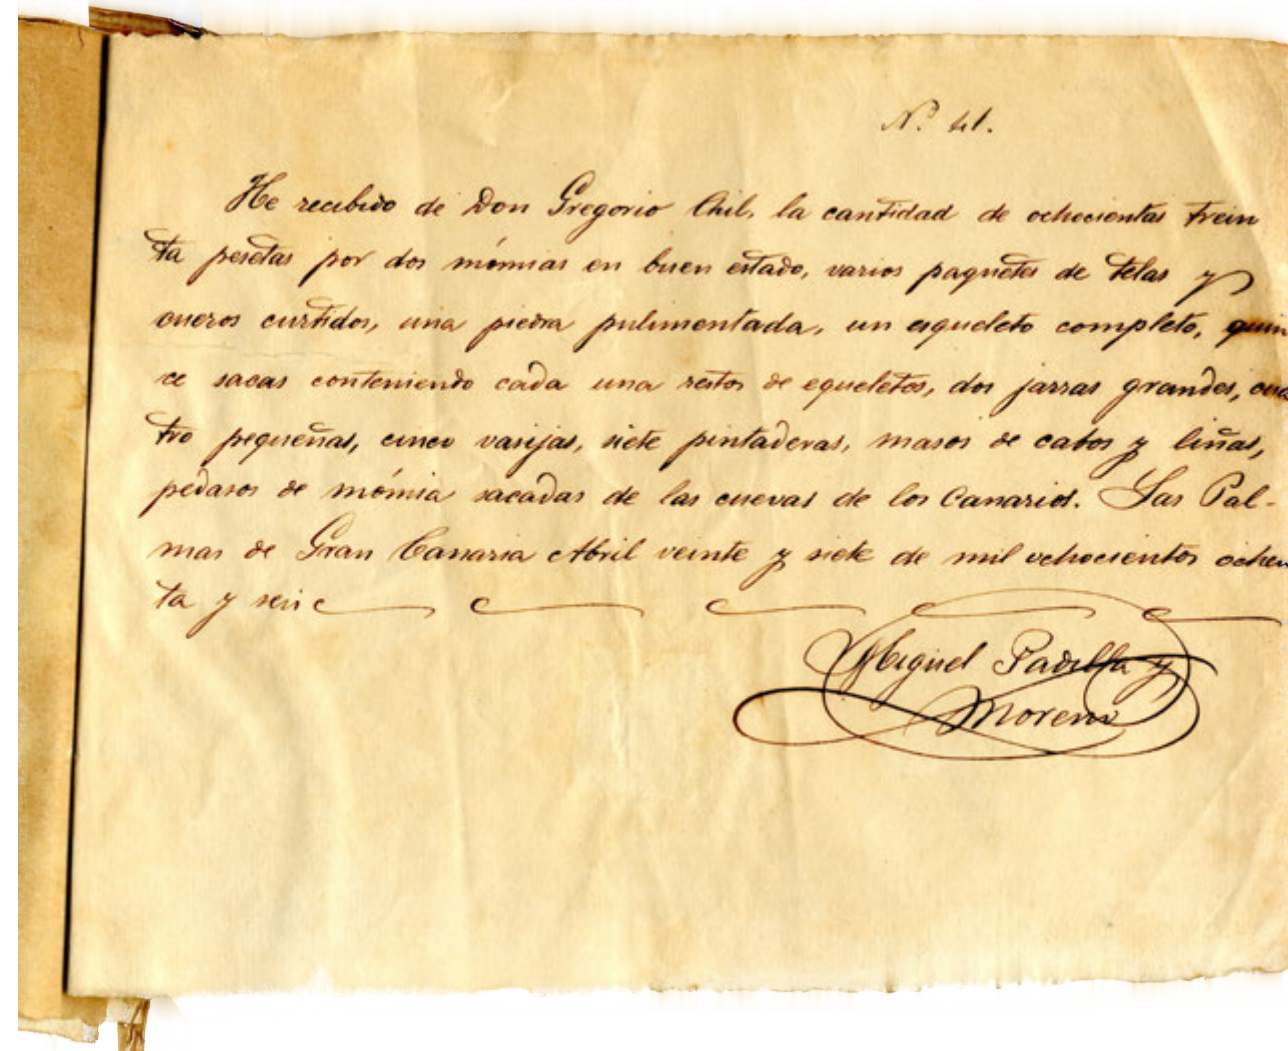 N.º 41.
He recibido de Don Gregorio Chil, la cantidad de ochocientas trein
ta pesetas por dos mómias en buen estado, varios paquetes de telas y
cueros curtidos, una piedra pulimentada, un esqueleto completo, quin
ce sacas conteniendo cada una restos de equeletos, dos jarras grandes, cua
tro pequeñas, cinco vasijas, siete pintaderas, masos de cabos y liñas,
pedasos de mómia sacadas de las cuevas de los Canarios. Las Pal-
mas de Gran Canaria Abril veinte y siete de mil ochocientos ochen
ta y seis
Miguel Padilla y
Moreno